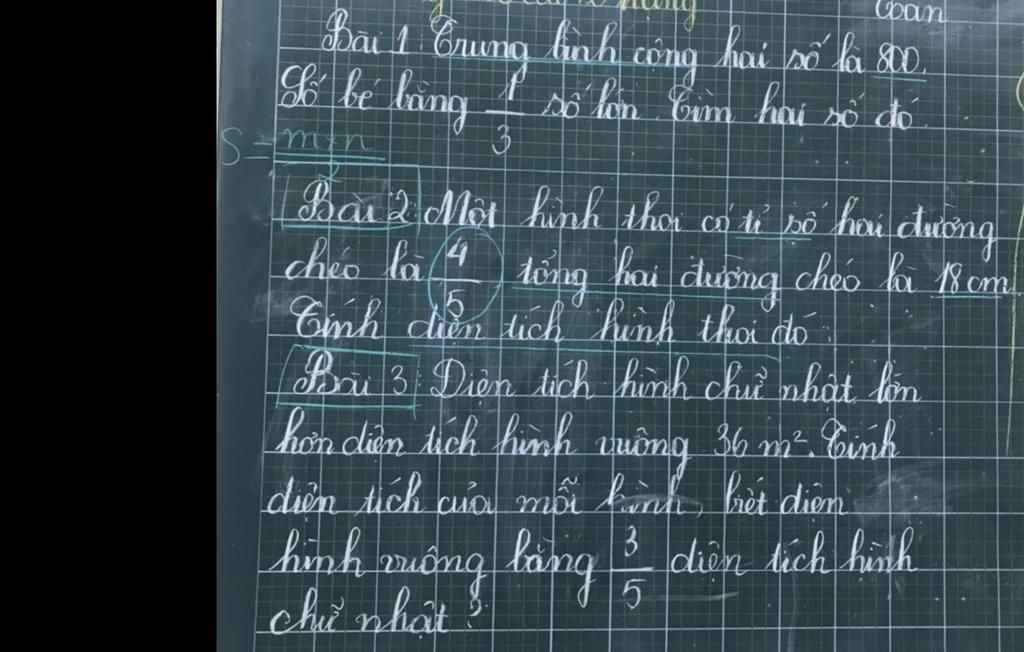 Toán
Bài 1: Trung bình cộng hai số là 800.
Số bé bằng 1/3 số lớn. Tìm hai số đó.
S = m x n / 2
Bài 2: Một hình thoi có tỉ số hai đường
chéo là 4/5 tổng hai đường chéo là 18 cm.
Tính diện tích hình thoi đó.
Bài 3: Diện tích hình chữ nhật lớn
hơn diện tích hình vuông 36 m². Tính
diện tích của mỗi hình, biết diện
hình vuông bằng 3/5 diện tích hình
chữ nhật?